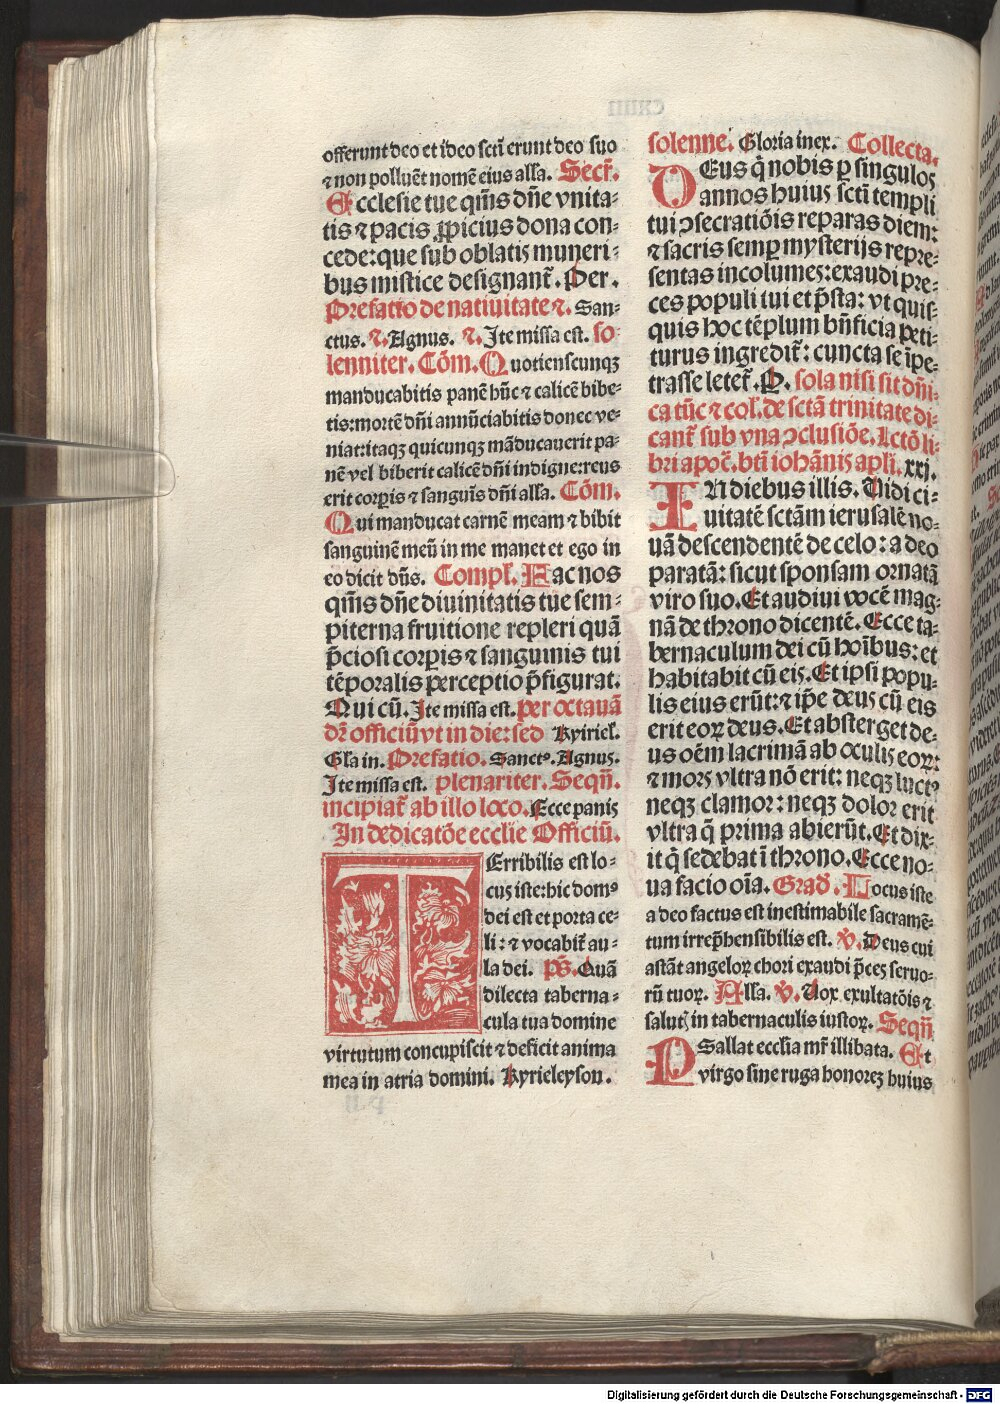 offerunt deo et ideo sctī erunt deo suo
⁊ non polluēt nomē eius alla. Secr̄.
Ecclesie tue qm̄s dn̄e vnita-
tis ⁊ pacis ꝓpicius dona con-
cede: que sub oblatis muneri-
bus mistice designant̄. Per.
Prefatio de natiuitate ⁊. San-
ctus. ⁊. Agnus. ⁊. Ite missa est. so
lenniter. Cōm. Quotienscunqꝫ
manducabitis panē hūc ⁊ calicē bibe-
tis: mortē dn̄i annūciabitis donec ve-
niat: itaqꝫ quicunqꝫ māducauerit pa-
nē vel biberit calicē dn̄i indigne: reus
erit corp̄is ⁊ sanguīs dn̄i alla. Cōm.
Qui manducat carnē meam ⁊ bibit
sanguinē meū in me manet et ego in
eo dicit dn̄s. Compl̄. Fac nos
qm̄s dn̄e diuinitatis tue sem-
piterna fruitione repleri quā
p̄ciosi corp̄is ⁊ sanguinis tui
tēporalis perceptio p̄figurat.
Qui cū. Ite missa est. per octauā
dr̄ officiū vt in die: sed Kyriel̄.
Gl̄a in. Prefatio. Sanctꝰ. Agnus.
Ite missa est. plenariter. Seqn̄.
incipiat̄ ab illo loco. Ecce panis
In dedicatōe ecclie Officiū.
Terribilis est lo-
cus iste: hic domꝰ
dei est et porta ce-
li: ⁊ vocabit̄ au-
la dei. p̄s. Quā
dilecta taberna-
cula tua domine
virtutum concupiscit ⁊ deficit anima
mea in atria domini. Kyrieleyson.
solenne. Gloria in ex. Collecta.
DEus q̄ nobis p̄ singulos
annos huius sctī templi
tui ↄsecratiōis reparas diem:
⁊ sacris semp̄ mysterijs repre-
sentas incolumes: exaudi pre-
ces populi tui et p̄sta: vt quis-
quis hoc tēplum bn̄ficia peti-
turus ingredit̄: cuncta se īpe-
trasse letet̄. P. sola nisi sit dn̄i-
ca tūc ⁊ col̄. de sctā trinitate di-
cant̄ sub vna ↄclusiōe. Lctō li-
bri apoc̄. bt̄i iohānis apl̄i. xxj.
IN diebus illis. Vidi ci-
uitatē sctām ierusalē no-
uā descendentē de celo: a deo
paratā: sicut sponsam ornatā
viro suo. Et audiui vocē mag-
nā de throno dicentē. Ecce ta-
bernaculum dei cū hoībus: et
habitabit cū eis. Et ipsi popu-
lis eius erūt: ⁊ ip̄e deus cū eis
erit eoꝝ deus. Et absterget de-
us oēm lacrimā ab oculis eoꝝ:
⁊ mors vltra nō erit: neqꝫ luctꝰ
neqꝫ clamor: neqꝫ dolor erit
vltra q̄ prima abierūt. Et dix-
it q̄ sedebat ī throno. Ecce no-
ua facio oīa. Grad̄. Locus iste
a deo factus est inestimabile sacramē-
tum irrep̄hensibilis est. v̄. Deus cui
astāt angeloꝝ chori exaudi p̄ces seruo-
rū tuoꝝ. Alla. v̄. Vox exultatōis ⁊
salutꝭ in tabernaculis iustoꝝ. Seqn̄
PSallat eccl̄ia mr̄ illibata. Et
virgo sine ruga honorez huius
Digitalisierung gefördert durch die Deutsche Forschungsgemeinschaft - DFG